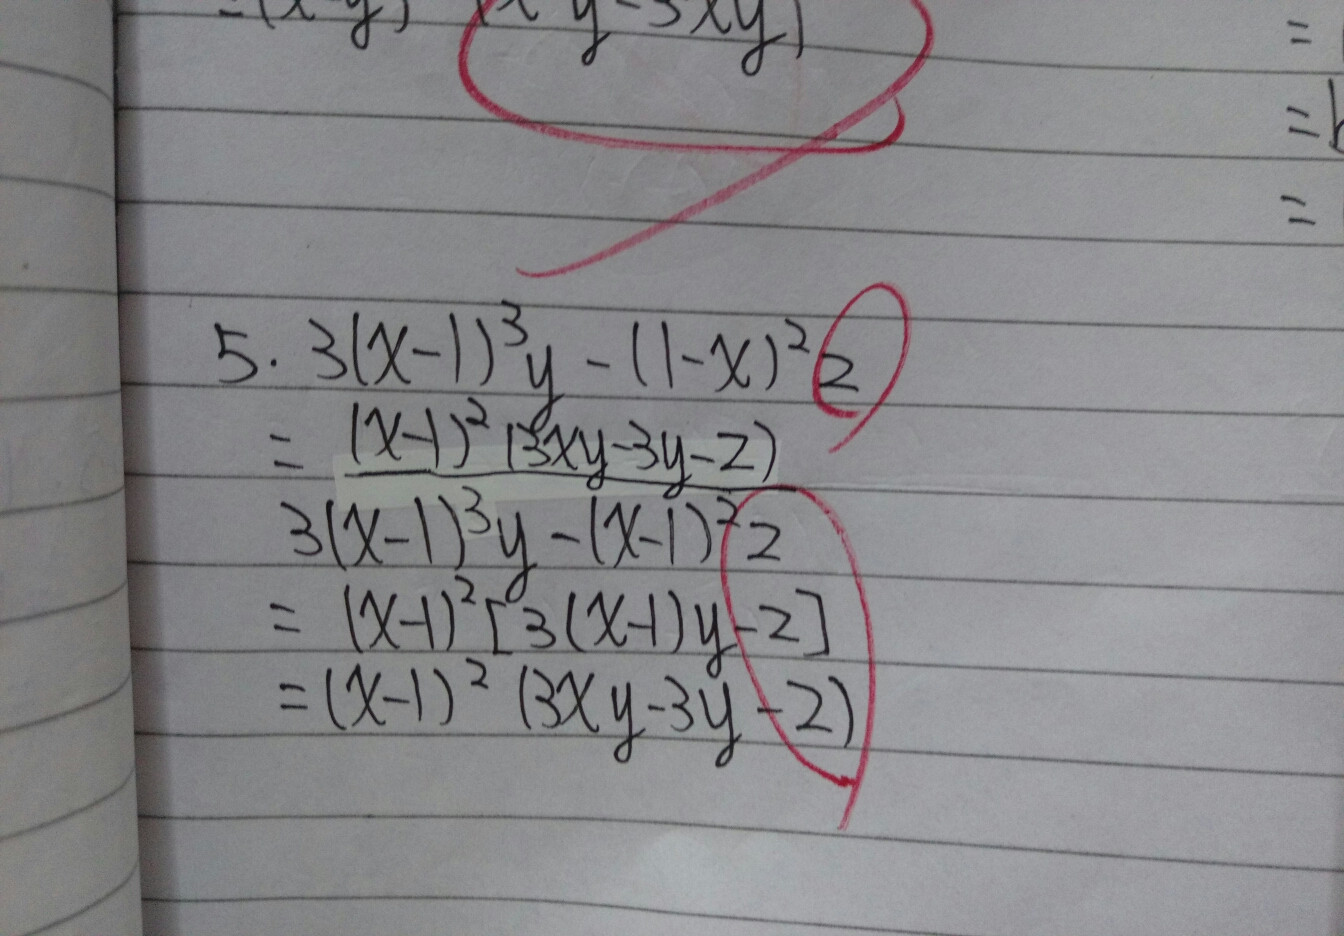 5. 3(x-1)³y - (1-x)²z
= (x-1)² (3xy-3y-z)
3(x-1)³y - (x-1)²z
= (x-1)² [3(x-1)y-z]
= (x-1)² (3xy-3y-z)